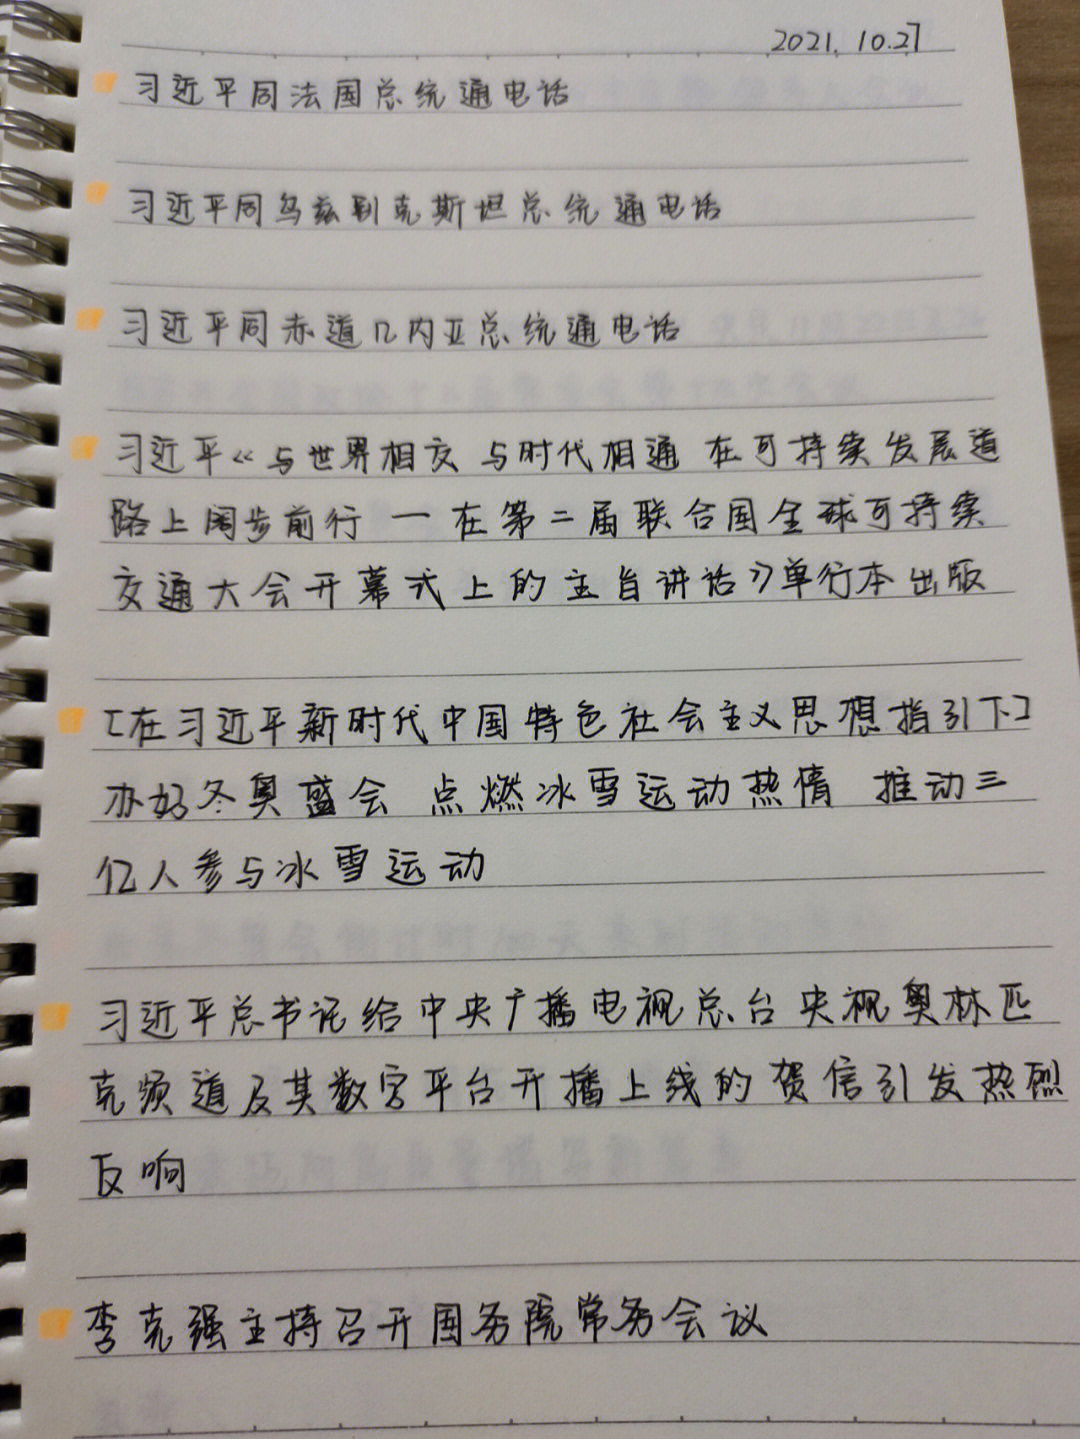 2021.10.27
习近平同法国总统通电话
习近平同乌兹别克斯坦总统通电话
习近平同赤道几内亚总统通电话
习近平《与世界相交 与时代相通 在可持续发展道
路上阔步前行 — 在第二届联合国全球可持续
交通大会开幕式上的主旨讲话》单行本出版
[在习近平新时代中国特色社会主义思想指引下]
办好冬奥盛会 点燃冰雪运动热情 推动三
亿人参与冰雪运动
习近平总书记给中央广播电视总台央视奥林匹
克频道及其数字平台开播上线的贺信引发热烈
反响
李克强主持召开国务院常务会议